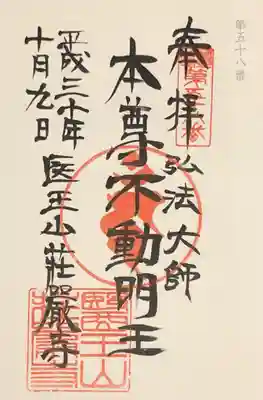 第五十八番
奉拝
弘法大師
本尊不動明王
医王山荘厳寺
平成三十年
十月九日
醫王山